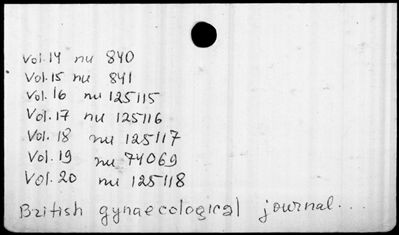 Vol. 14 nu 840
Vol. 15 nu 841
Vol. 16 nu 125115
Vol. 17 nu 125116
Vol. 18 nu 125117
Vol. 19 nu 74069
Vol. 20 nu 125118
British gynaecological journal...